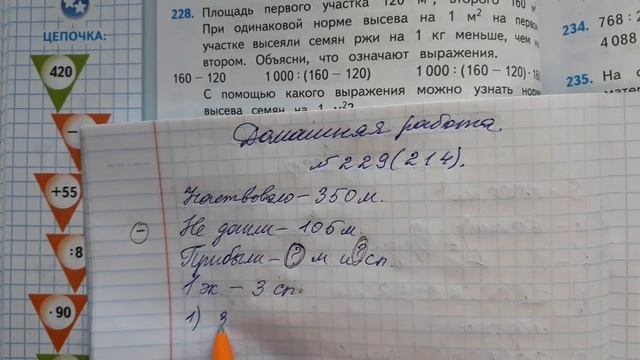 ЦЕПОЧКА:
420
−
+55
:8
·90
228. Площадь первого участка 120 м², второго 160 м
При одинаковой норме высева на 1 м² на перво
участке высеяли семян ржи на 1 кг меньше, чем н
втором. Объясни, что означают выражения.
160 − 120 1 000 : (160 − 120) 1 000 : (160 − 120) · 16
С помощью какого выражения можно узнать норм
высева семян на 1 м²?
234. 768 : 2
4 088
235. На с
матем
Домашняя работа.
№ 229 (214).
– 350 м.
−
Не дошли – 105 м.
Прибыли – ? м и ? сп.
1 ж – 3 сп.
1) 3